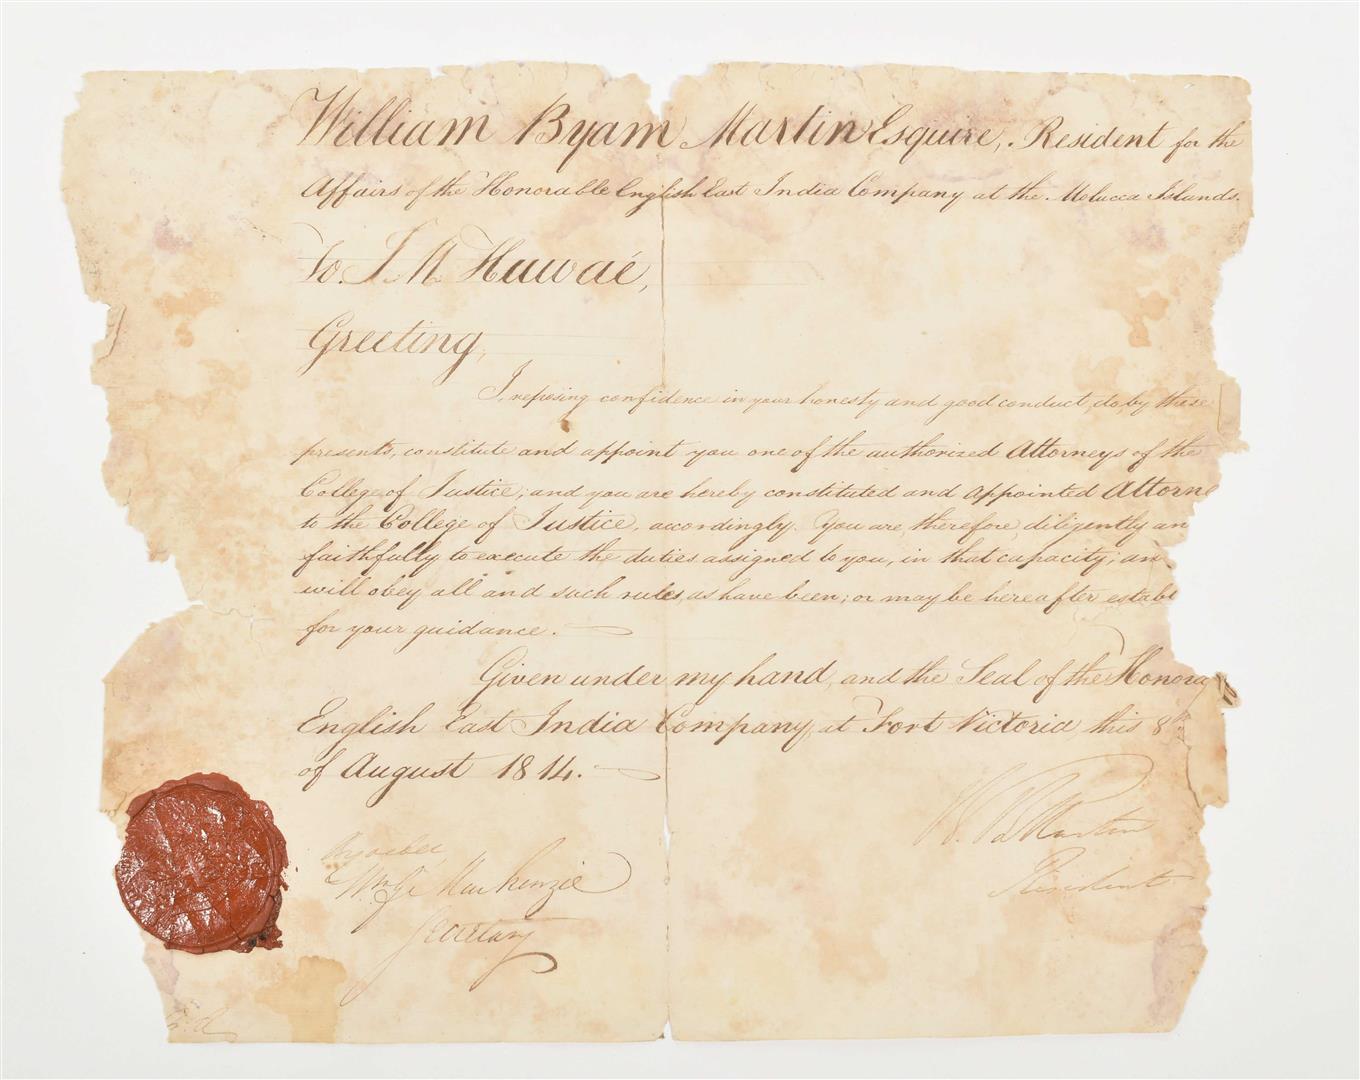 William Byam Martin Esquire, Resident for the
Affairs of the Honorable English East India Company at the Molucca Islands.
To. J. A. Huwaé,
Greeting,
I, reposing confidence in your honesty and good conduct, do, by these
presents, constitute and appoint you one of the authorized Attorneys of the
College of Justice; and you are hereby constituted and appointed Attorne
to the College of Justice, accordingly. You are, therefore, diligently an
faithfully to execute the duties assigned to you, in that capacity; an
will obey all and such rules, as have been; or may be hereafter establ
for your guidance.
Given under my hand, and the Seal of the Honora
English East India Company, at Fort Victoria this 8th
of August 1814.
W. B. Martin
Resident
By order,
Mackenzie
Secretary